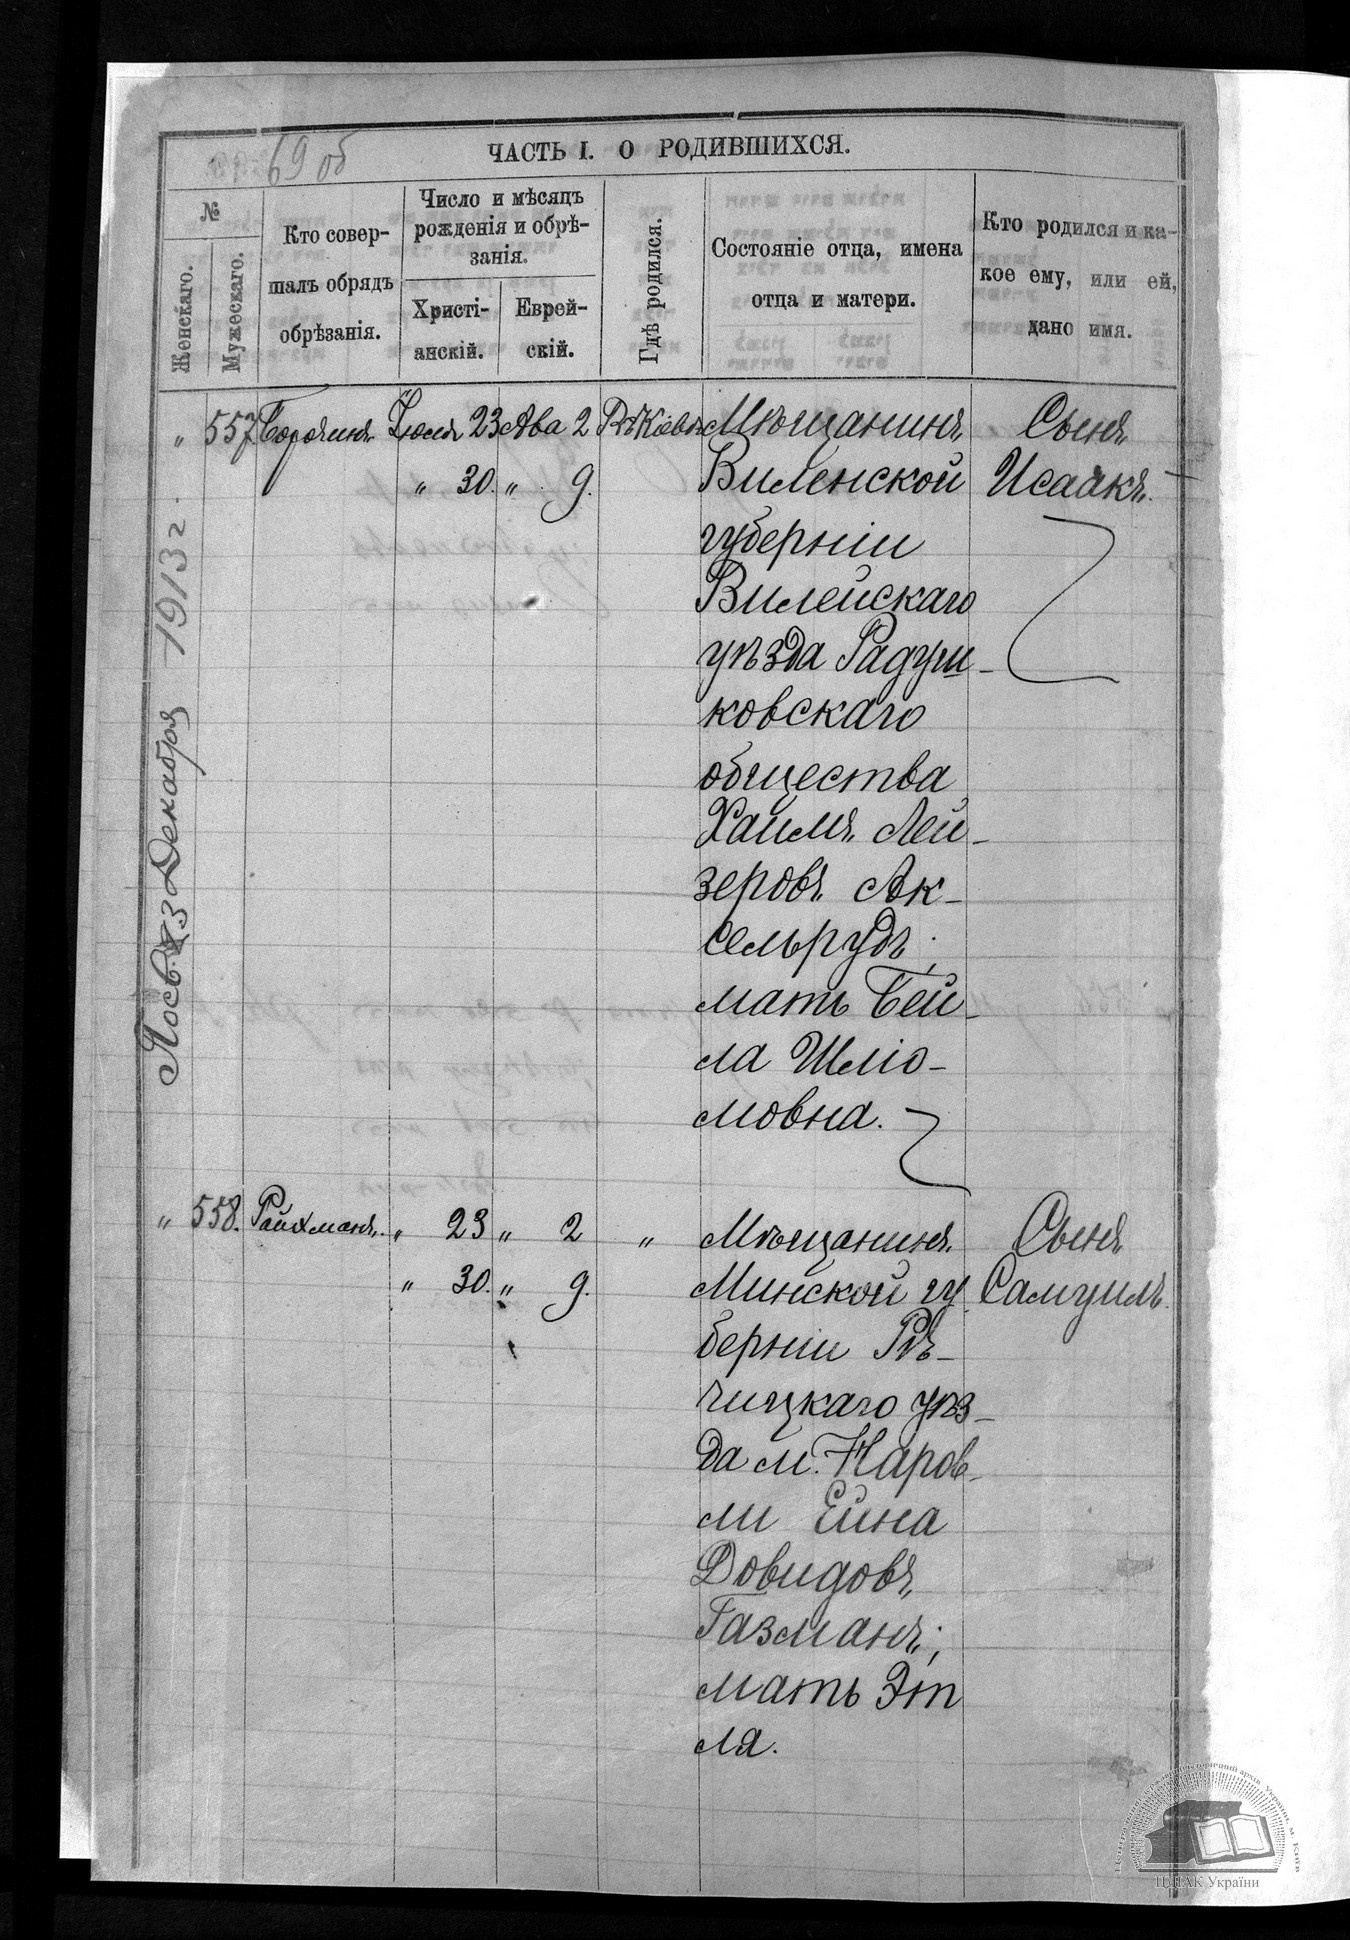 69 об
ЧАСТЬ I. О РОДИВШИХСЯ.
№
Женскаго.
Мужескаго.
Кто совер-
шалъ обрядъ
обрѣзанія.
Число и мѣсяцъ
рожденія и обрѣ-
занія.
Христі-
анскій.
Еврей-
скій.
Гдѣ родился.
Состояніе отца, имена
отца и матери.
Кто родился и ка-
кое ему, или ей,
дано имя.
" 557 Іюля 23 Ава 2 Въ Кіевѣ Мѣщанинъ Сынъ
" 30. " 9. Виленской Исаакъ.
губерніи
Вилейскаго
уѣзда Радуш-
ковскаго
общества
Хаимъ Лей-
зеровъ Ак-
сельрудъ;
мать Бей-
ла Шліо-
мовна.
" 558. Райхманъ. " 23 " 2 " Мѣщанинъ Сынъ
" 30. " 9. Минской гу Самуилъ.
берніи Рѣ-
чицкаго уѣз-
да м. Наров-
ли Ейна
Довидовъ
Газманъ;
мать Эт
ля.
Декабря 1913 г.
ЦДІАК України